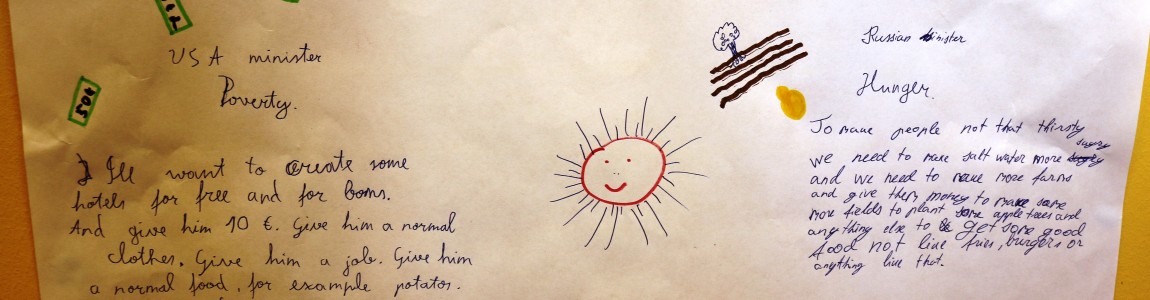 50€
USA minister
Poverty.
I'll want to create some
hotels for free and for boms.
And give him 10 €. Give him a normal
clothes. Give him a job. Give him
a normal food, for example potatos.
Russian minister
Hunger.
To make people not that thirsty
we need to make salt water more sugry
and we need to make more farms
and give them money to make some
more fields to plant some apple trees and
anything else to get some good
food not like fries, burgers or
anything like that.